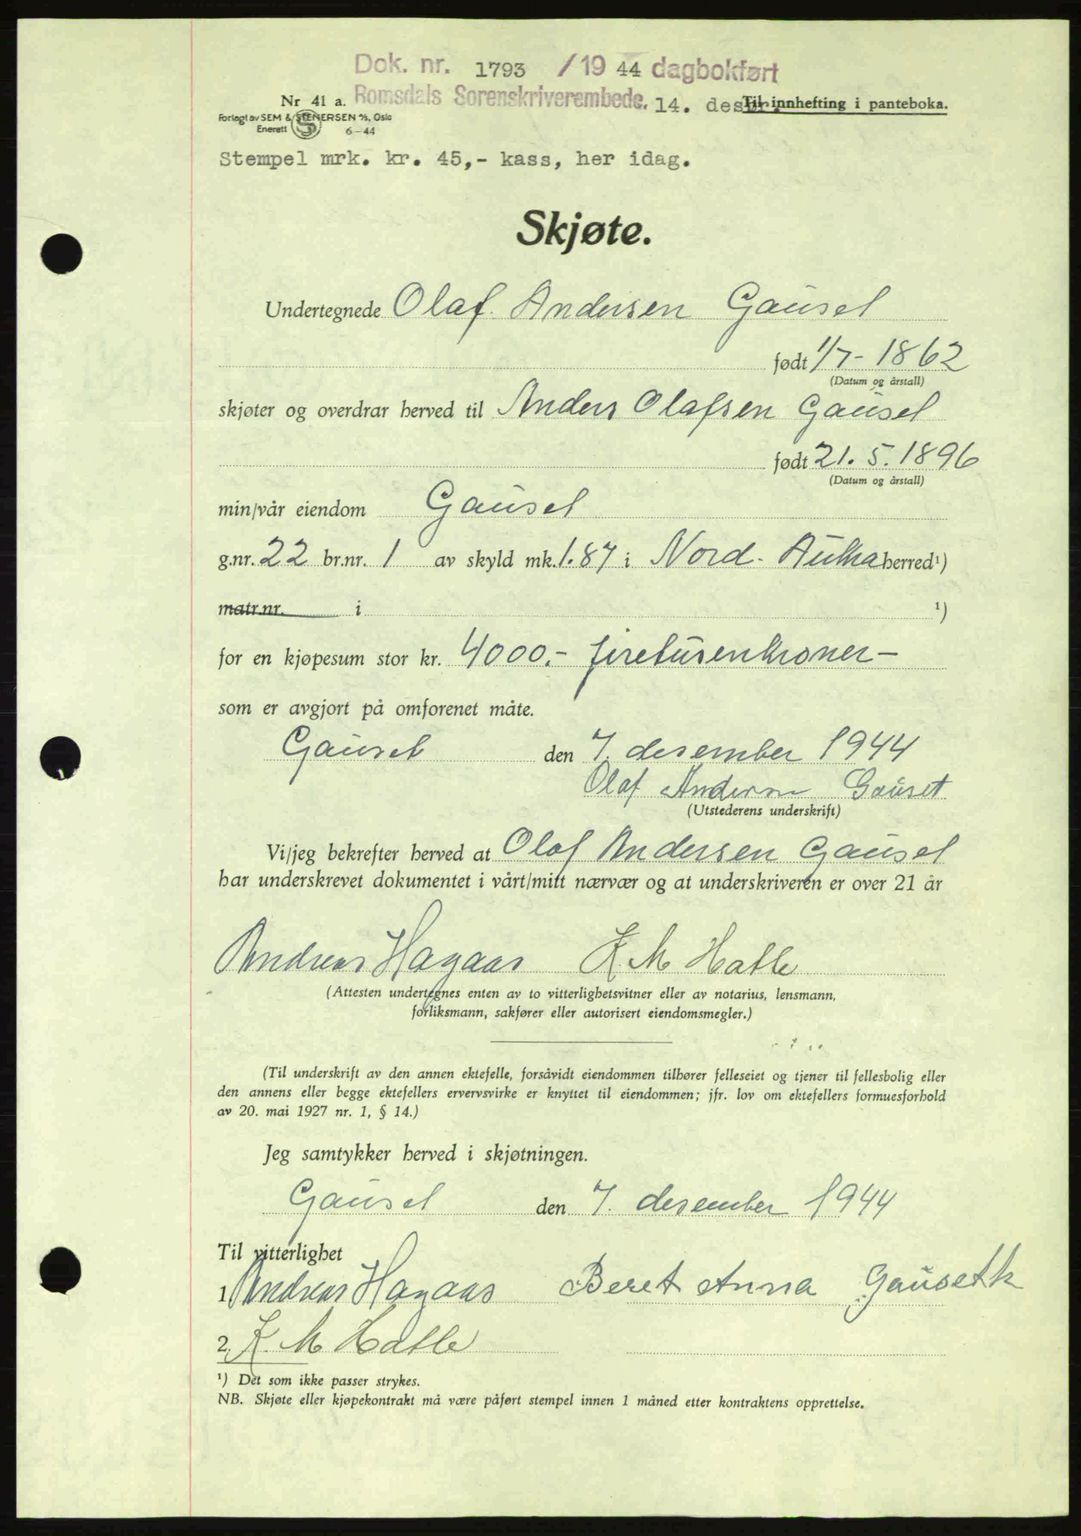 Dok. nr. 1793 /19 44 dagbokført
Nr 41 a. Romsdals Sorenskriverembede. 14. desbr. Til innhefting i panteboka.
Forlagt av SEM & STENERSEN A/S, Oslo
Enerett 6-44
Stempel mrk. kr. 45,- kass, her idag.
Skjøte.
Undertegnede Olaf Andersen Gausel
født 1/7 - 1862
(Datum og årstall)
skjøter og overdrar herved til Anders Olafsen Gausel
født 21. 5. 1896
(Datum og årstall)
min/vår eiendom Gausel
g.nr. 22 br.nr. 1 av skyld mk. 1.87 i Nord-Aukra herred¹)
matr.nr. i ¹)
for en kjøpesum stor kr. 4000.- firetusenkroner-
som er avgjort på omforenet måte.
Gauset den 7. desember 1944
Olaf Andersen Gauset
(Utstederens underskrift)
Vi/jeg bekrefter herved at Olaf Andersen Gausel
har underskrevet dokumentet i vårt/mitt nærvær og at underskriveren er over 21 år
Andreas Hagaas K. M Hatle
(Attesten undertegnes enten av to vitterlighetsvitner eller av notarius, lensmann,
forliksmann, sakfører eller autorisert eiendomsmegler.)
(Til underskrift av den annen ektefelle, forsåvidt eiendommen tilhører felleseiet og tjener til fellesbolig eller
den annens eller begge ektefellers ervervsvirke er knyttet til eiendommen; jfr. lov om ektefellers formuesforhold
av 20. mai 1927 nr. 1, § 14.)
Jeg samtykker herved i skjøtningen.
Gausel den 7. desember 1944
Til vitterlighet
1. Andreas Hagaas Beret Anna Gauseth
2. K. M Hatle
¹) Det som ikke passer strykes.
NB. Skjøte eller kjøpekontrakt må være påført stempel innen 1 måned etter kontraktens opprettelse.